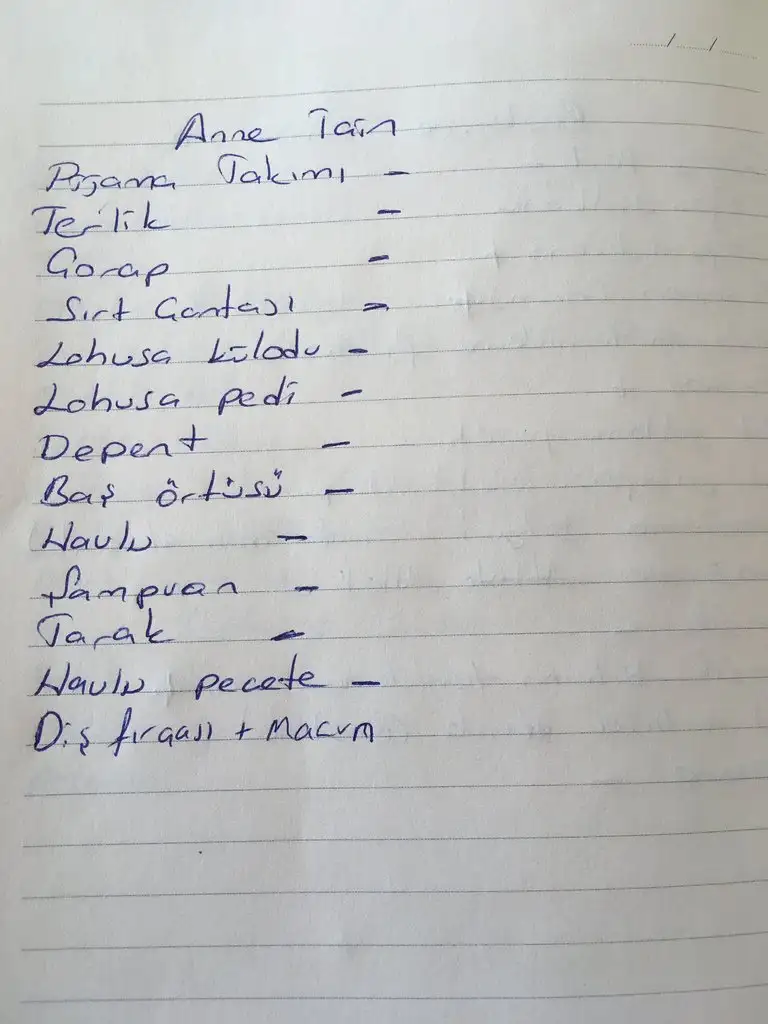 Anne İçin
Pijama Takımı -
Terlik -
Çorap -
Sırt Çantası -
Lohusa külodu -
Lohusa pedi -
Depent -
Baş örtüsü -
Havlu -
Şampuan -
Tarak -
Havlu peçete -
Diş fırçası + Macun